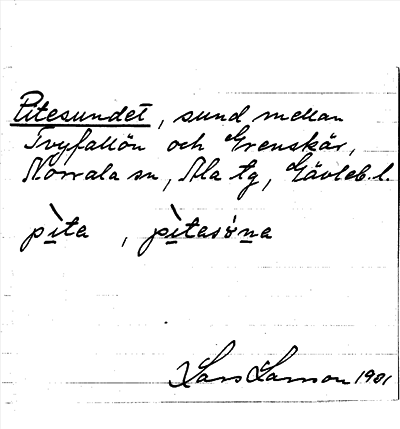 Pitesundet, sund mellan
Tvyfallön och Grenskär,
Norrala sn, Ala tg, Gävleb. l.
pìta, pìtasóna
Lars Larsson 1981